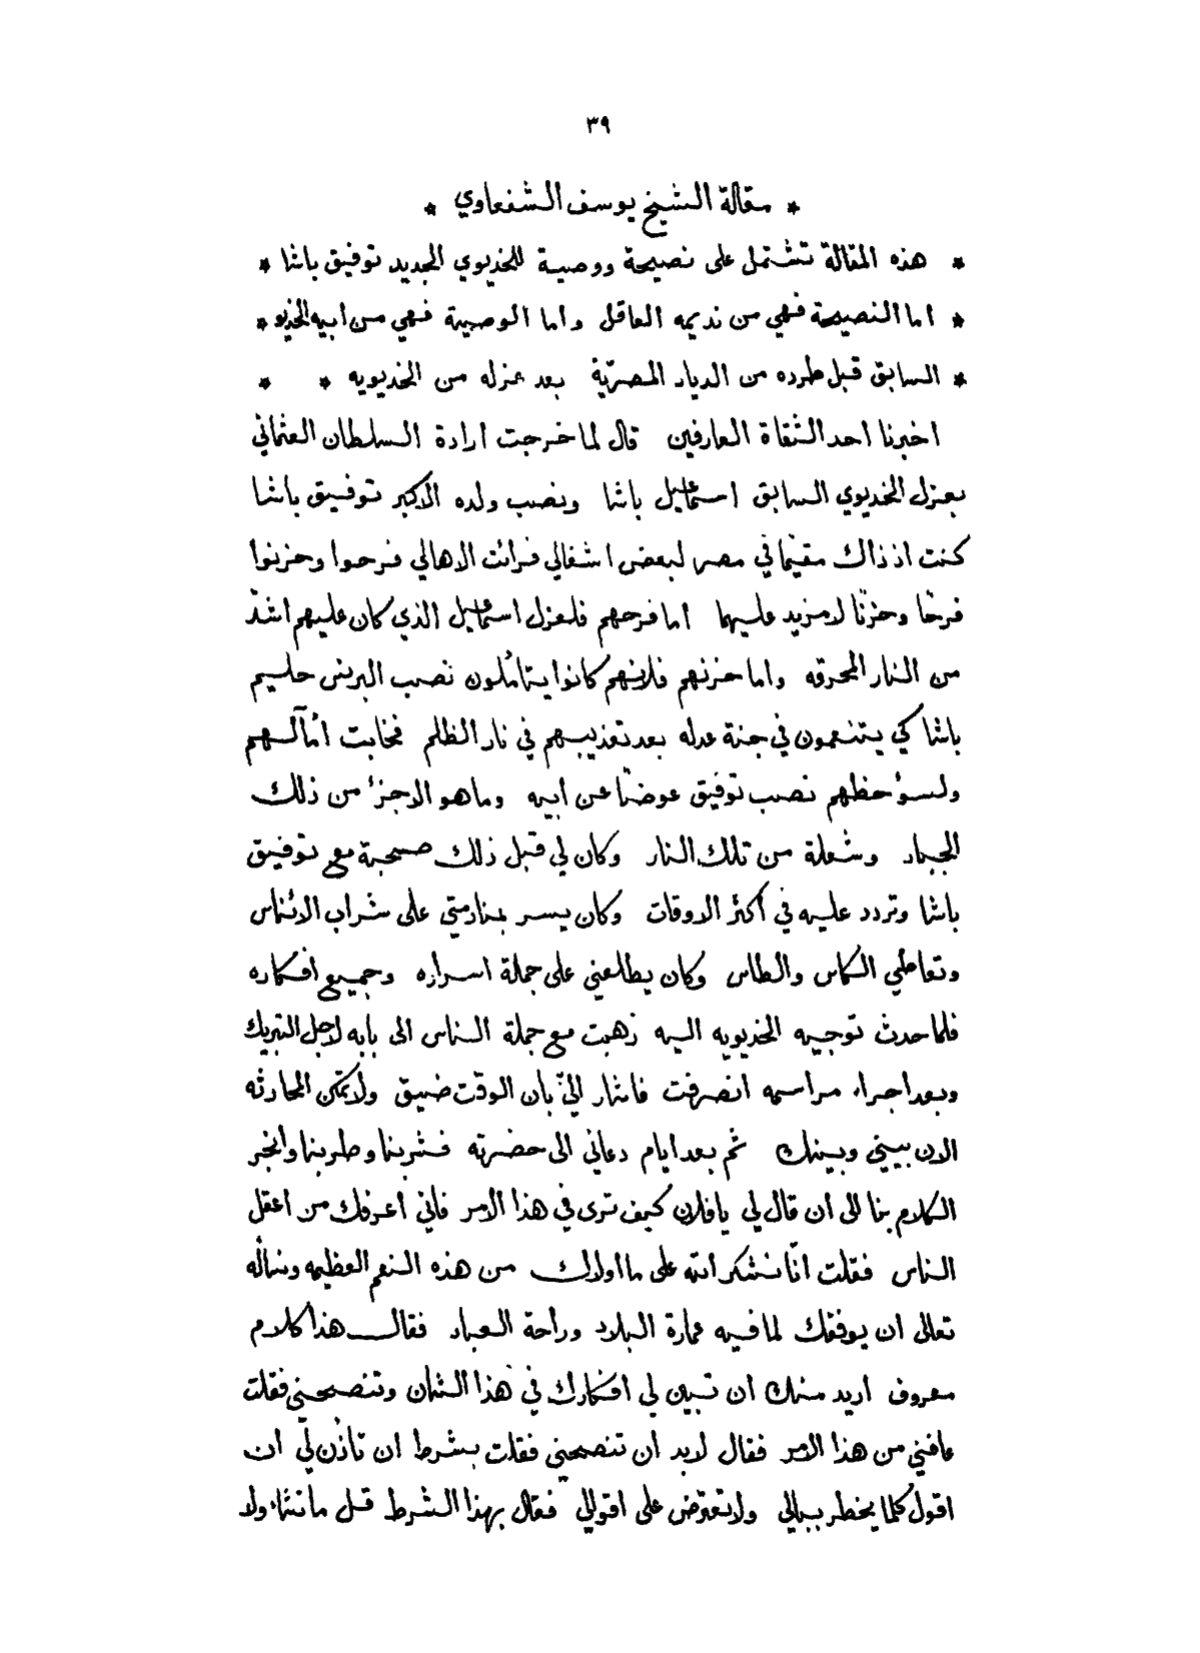 ٣٩
* مقالة الشيخ يوسف الشفعاوي *
* هذه المقالة تشتمل على نصيحة ووصية للخديوي الجديد توفيق باشا *
* اما النصيحة فهي من نديمه العاقل واما الوصية فهي من ابيه الخديو *
* السابق قبل طرده من الديار المصريّة بعد عزله من الخديويه * *
اخبرنا احد الثقاة العارفين قال لما خرجت ارادة السلطان العثماني
بعزل الخديوي السابق اسماعيل باشا ونصب ولده الاكبر توفيق باشا
كنت اذ ذاك مقيمًا في مصر لبعض اشغالي فرأت الاهالي فرحوا وحزنوا
فرحًا وحزنًا لا مزيد عليهما اما فرحهم فلعزل اسماعيل الذي كان عليهم اشدّ
من النار المحرقه واما حزنهم فلانهم كانوا يتأملون نصب البرنس حليم
باشا كي يتنعمون في جنة عدله بعد تعذيبهم في نار الظلم فخابت أمآلهم
ولسوٴ حظهم نصب توفيق عوضًا عن ابيه وما هو الا جزٴ من ذلك
الجبار وشعلة من تلك النار وكان لي قبل ذلك صحبة مع توفيق
باشا وتردد عليه في أكثر الاوقات وكان يسر بمنادمتي على شراب الائناس
وتعاطي الكاس والطاس وكان يطلعني على جملة اسراره وجميع افكاره
فلما حدث توجيه الخديويه اليه ذهبت مع جملة الناس الى بابه لاجل التبريك
وبعد اجراء مراسمه انصرفت فاشار اليّ بأن الوقت ضيق ولا تمكن المحادثه
الان بيني وبينك ثم بعد ايام دعاني الى حضرته فشربنا وطربنا وانجر
الكلام بنا الى ان قال لي يا فلان كيف ترى في هذا الامر فاني أعرفك من اعقل
الناس فقلت انّا نشكر الله على ما اولاك من هذه النعم العظيمه ونسأله
تعالى ان يوفقك لما فيه عمارة البلاد وراحة العباد فقال هذا كلام
معروف اريد منك ان تبين لي افكارك في هذا الشان وتنصحني فقلت
عافني من هذا الامر فقال لابد ان تنصحني فقلت بشرط ان تأذن لي ان
اقول كلما يخطر ببالي ولا تعترض على اقوالي فقال بهذا الشرط قل ما تشاء ولا